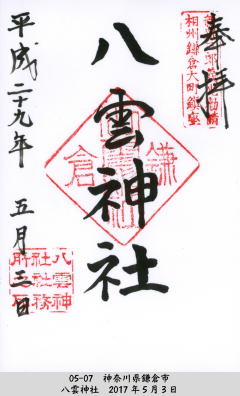 奉拝
相州鎌倉大町鎮座
八雲神社
平成二十九年 五月三日
八雲神社社務所印
05-07 神奈川県鎌倉市
八雲神社 2017年5月3日